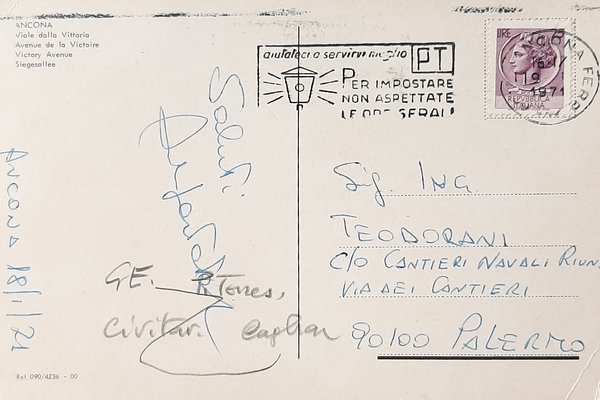 ANCONA
Viale della Vittoria
Avenue de la Victoire
Victory Avenue
Siegesallee
aiutateci a servirvi meglio PT
PER IMPOSTARE
NON ASPETTATE
LE ORE SERALI
LIRE
REPVBBLICA
ITALIANA
ANCONA FERR
16-17
19
1971
Saluti
Ancona 18/1/71
GE. P. Torres,
Civitav. Cagliari
Sig. ING.
TEODORANI
C/O CANTIERI NAVALI RIUN.
VIA DEI CANTIERI
90100 PALERMO
Ref 090/4236 - 00